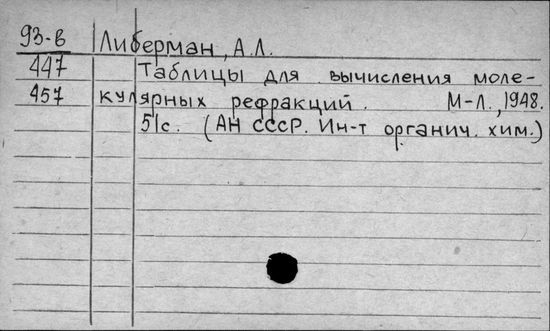 93-в Либерман, А.Л.
447 Таблицы для вычисления моле-
457 кулярных рефракций. М-Л., 1948.
51с. (АН СССР. Ин-т органич. хим.)